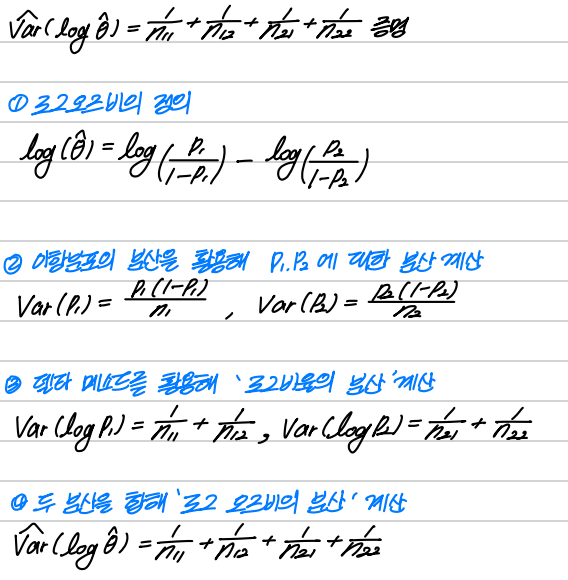 V̂ar(log θ̂) = 1/n₁₁ + 1/n₁₂ + 1/n₂₁ + 1/n₂₂ 증명
① 로그오즈비의 정의
log(θ̂) = log(P₁/(1-P₁)) - log(P₂/(1-P₂))
② 이항분포의 분산을 활용해 P₁.P₂에 대한 분산 계산
Var(P₁) = P₁(1-P₁)/n₁ , Var(P₂) = P₂(1-P₂)/n₂
③ 델타 메소드를 활용해 '로그비율의 분산' 계산
Var(log P₁) = 1/n₁₁ + 1/n₁₂ , Var(log P₂) = 1/n₂₁ + 1/n₂₂
④ 두 분산을 합해 '로그 오즈비의 분산' 계산
V̂ar(log θ̂) = 1/n₁₁ + 1/n₁₂ + 1/n₂₁ + 1/n₂₂